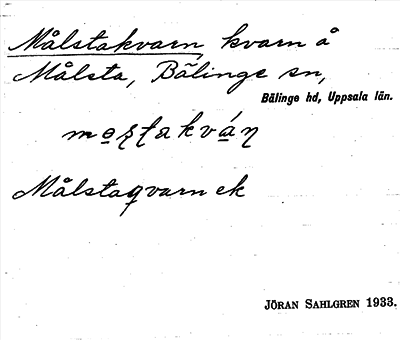 Målstakvarn, kvarn å
Målsta, Bälinge sn,
Bälinge hd, Uppsala län.
Målstaqvarn ek
JÖRAN SAHLGREN 1933.